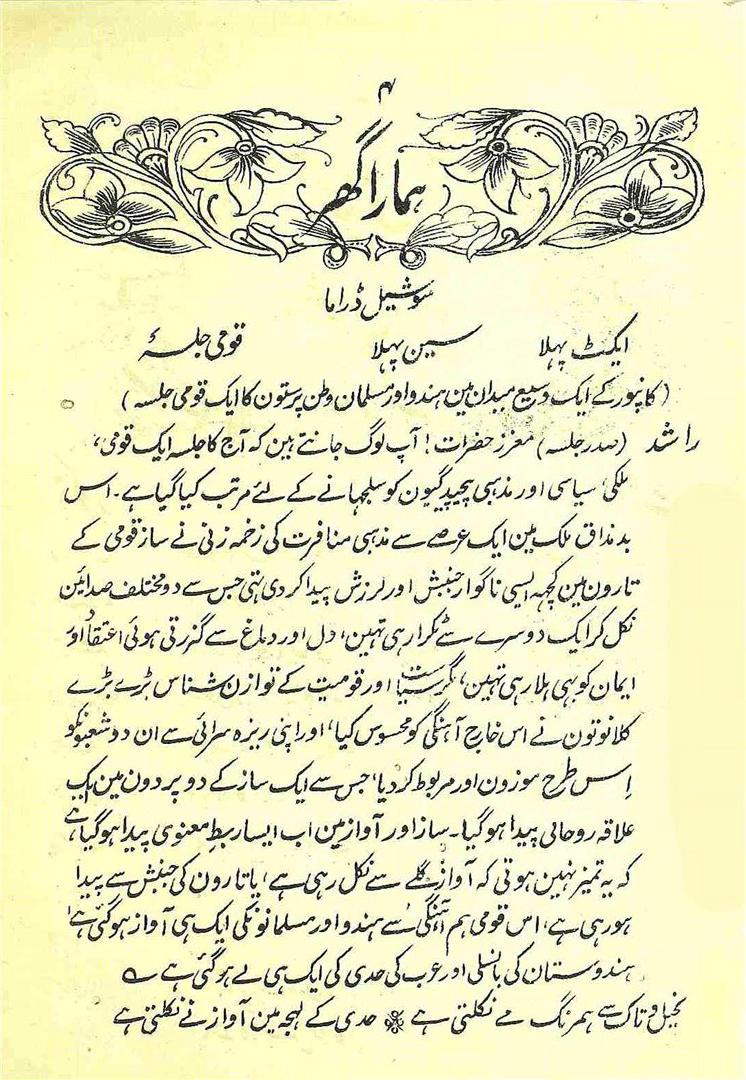 ۴
ہمارا گھر
سوشیل ڈراما
ایکٹ پہلا سین پہلا قومی جلسۂ
(کانپور کے ایک وسیع میدان مین ہندو اور مسلمان وطن پرستون کا ایک قومی جلسہ)
راشد (صدر جلسہ) معزز حضرات! آپ لوگ جانتے ہین کہ آج کا جلسہ ایک قومی،
ملکی، سیاسی اور مذہبی پیچیدگیون کو سلجھانے کے لئے مرتب کیا گیا ہے۔ اس
بدمذاق ملک مین ایک عرصے سے مذہبی منافرت کی زخمہ زنی نے ساز قومی کے
تارون مین کچہہ ایسی ناگوار جنبش اور لرزش پیدا کر دی تہی جس سے دو مختلف صدائین
نکل کر ایک دوسرے سے ٹکرا رہی تہین، دل اور دماغ سے گزرتی ہوئی اعتقاد اور
ایمان کو بہی ہلا رہی تہین، مگر سیاست اور قومیت کے توازن شناس بڑے بڑے
کلانوتون نے اس خارج آہنگی کو محسوس کیا، اور اپنی ریزہ سرائی سے ان دو شعبونکو
اِس طرح موزون اور مربوط کر دیا، جس سے ایک ساز کے دو پردون مین ایک
علاقہ روحانی پیدا ہو گیا۔ ساز اور آواز مین اب ایسا ربطِ معنوی پیدا ہو گیا ہے
کہ یہ تمیز نہین ہوتی کہ آواز گلے سے نکل رہی ہے، یا تارون کی جنبش سے پیدا
ہو رہی ہے، اس قومی ہم آہنگی سے ہندو اور مسلمانونکی ایک ہی آواز ہو گئی ہے،
ہندوستان کی بانسلی اور عرب کی حدی کی ایک ہی لے ہو گئی ہے ؎
نخیل و تاک سے ہمرنگ مے نکلتی ہے حدی کے لہجہ مین آواز نے نکلتی ہے